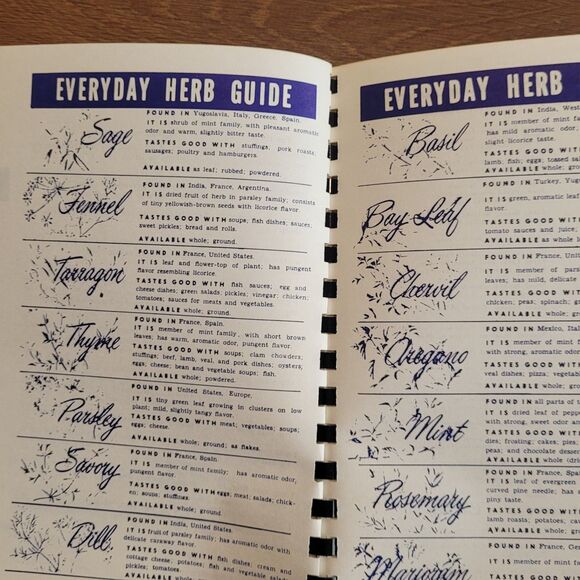 EVERYDAY HERB GUIDE
Sage
FOUND IN Yugoslavia, Italy, Greece, Spain.
IT IS shrub of mint family, with pleasant aromatic
odor and warm, slightly bitter taste.
TASTES GOOD WITH stuffings, pork roasts;
sausages; poultry and hamburgers.
AVAILABLE as leaf; rubbed; powdered.
Fennel
FOUND IN India, France, Argentina.
IT IS dried fruit of herb in parsley family; consists
of tiny yellowish-brown seeds with licorice flavor.
TASTES GOOD WITH soups; fish dishes; sauces;
sweet pickles; bread and rolls.
AVAILABLE whole; ground.
Tarragon
FOUND IN France, United States.
IT IS leaf and flower-top of plant; has pungent
flavor resembling licorice.
TASTES GOOD WITH fish sauces; egg and
cheese dishes; green salads; pickles; vinegar; chicken;
tomatoes; sauces for meats and vegetables.
AVAILABLE whole; ground.
Thyme
FOUND IN France, Spain.
IT IS member of mint family, with short brown
leaves; has warm, aromatic odor, pungent flavor.
TASTES GOOD WITH soups; clam chowders;
stuffings; beef, lamb, veal, and pork dishes; oysters;
eggs; cheese; bean and vegetable soups; fish.
AVAILABLE whole; powdered.
Parsley
FOUND IN United States, Europe.
IT IS tiny green leaf growing in clusters on low
plant; mild, slightly tangy flavor.
TASTES GOOD WITH meat; vegetables; soups;
eggs; cheese.
AVAILABLE whole; ground; as flakes.
Savory
FOUND IN France, Spain.
IT IS member of mint family; has aromatic odor,
pungent flavor.
TASTES GOOD WITH eggs, meat; salads; chick-
en; soups; stuffings.
AVAILABLE whole; ground.
Dill
FOUND IN India, United States.
IT IS fruit of parsley family; has aromatic odor with
delicate caraway flavor.
TASTES GOOD WITH fish dishes; cream and
cottage cheese; potatoes; fish and vegetable salads;
pickles; tomatoes.
EVERYDAY HERB
Basil
FOUND IN India, West
IT IS member of mint fam
has mild aromatic odor
slight licorice taste.
TASTES GOOD WITH
lamb; fish; eggs; tossed sal
AVAILABLE whole; gro
Bay Leaf
FOUND IN Turkey, Yug
IT IS green, aromatic leaf
flavor.
TASTES GOOD WIT
tomato sauces and juice;
AVAILABLE as whole l
Chervil
FOUND IN France, Unit
IT IS member of pars
leaves; has mild, delicate
TASTES GOOD WIT
chicken; peas; spinach; gr
AVAILABLE whole; gr
Oregano
FOUND IN Mexico, Ital
IT IS member of mint f
with strong, aromatic odor
TASTES GOOD WIT
veal dishes; pizza; vegetab
AVAILABLE whole; gr
Mint
FOUND IN all parts of t
IT IS dried leaf of pepper
with strong, sweet odor an
TASTES GOOD WIT
dies; frosting; cakes; pies,
peas; and chocolate desser
AVAILABLE whole (drie
Rosemary
FOUND IN France, Spa
IT IS leaf of evergreen
curved pine needle; has
piny taste.
TASTES GOOD WI
lamb roasts; potatoes, ca
AVAILABLE whole; gr
Marjoram
FOUND IN France, Ge
IT IS member of mint f
flavor.
TASTES GOOD WIT